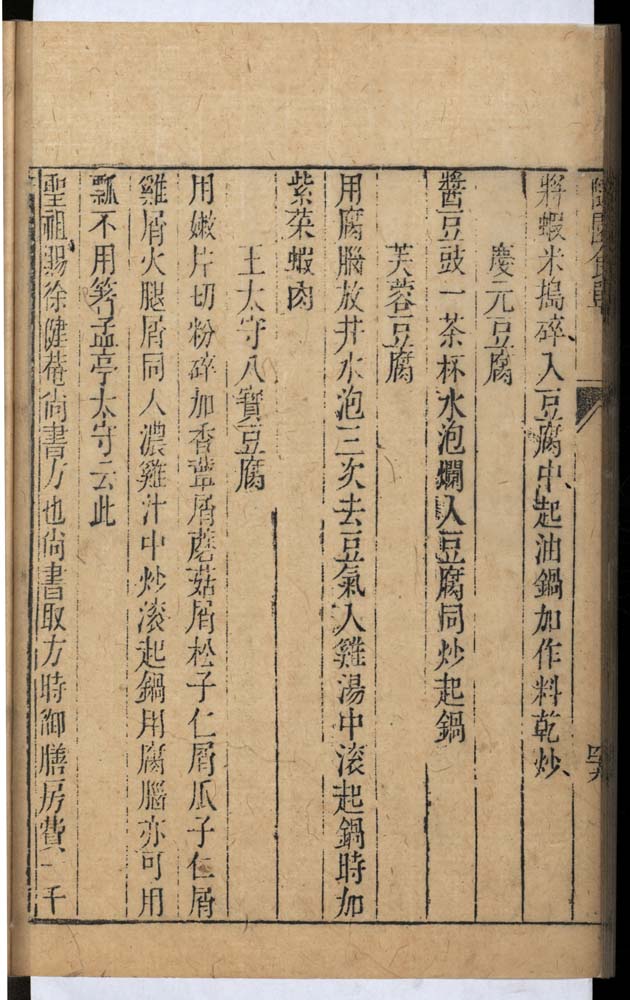 隨園食單
四六
將蝦米搗碎入豆腐中起油鍋加作料乾炒
慶元豆腐
醬豆豉一茶杯水泡爛入豆腐同炒起鍋
芙蓉豆腐
用腐腦放井水泡三次去豆氣入雞湯中滾起鍋時加
紫菜蝦肉
王太守八寶豆腐
用嫩片切粉碎加香蕈屑蘑菇屑松子仁屑瓜子仁屑
雞屑火腿屑同入濃雞汁中炒滾起鍋用腐腦亦可用
瓢不用箸孟亭太守云此
聖祖賜徐健菴尚書方也尚書取方時御膳房費一千